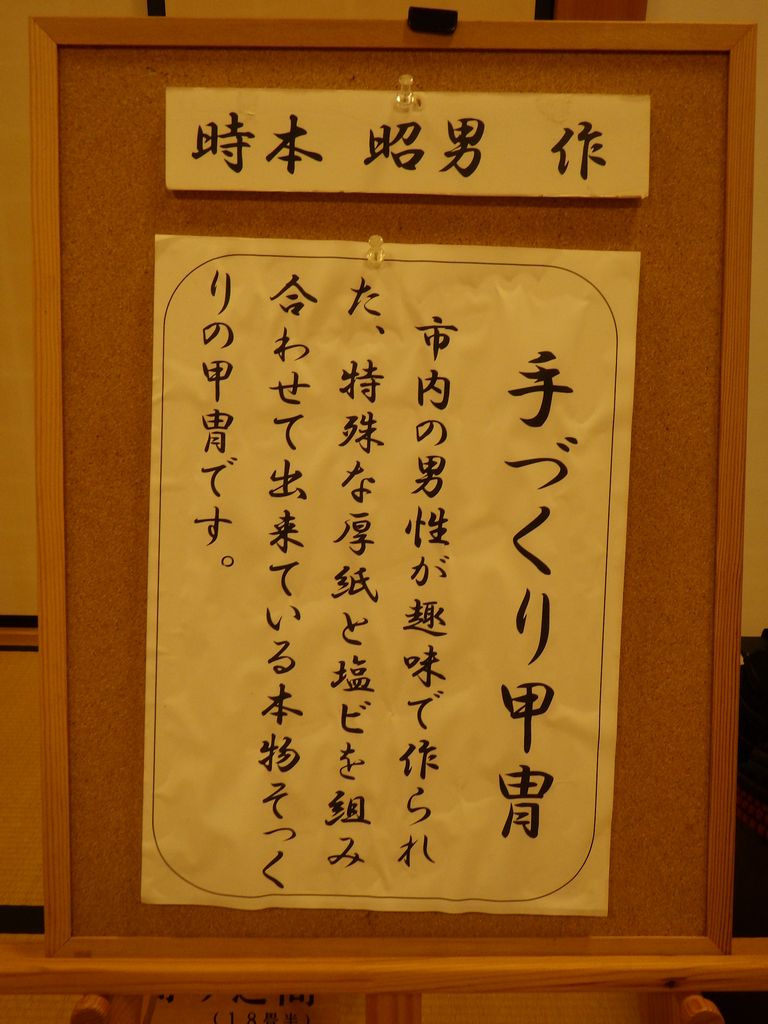 時本 昭男 作
手づくり甲冑
市内の男性が趣味で作られ
た、特殊な厚紙と塩ビを組み
合わせて出来ている本物そっく
りの甲冑です。
(18畳半)